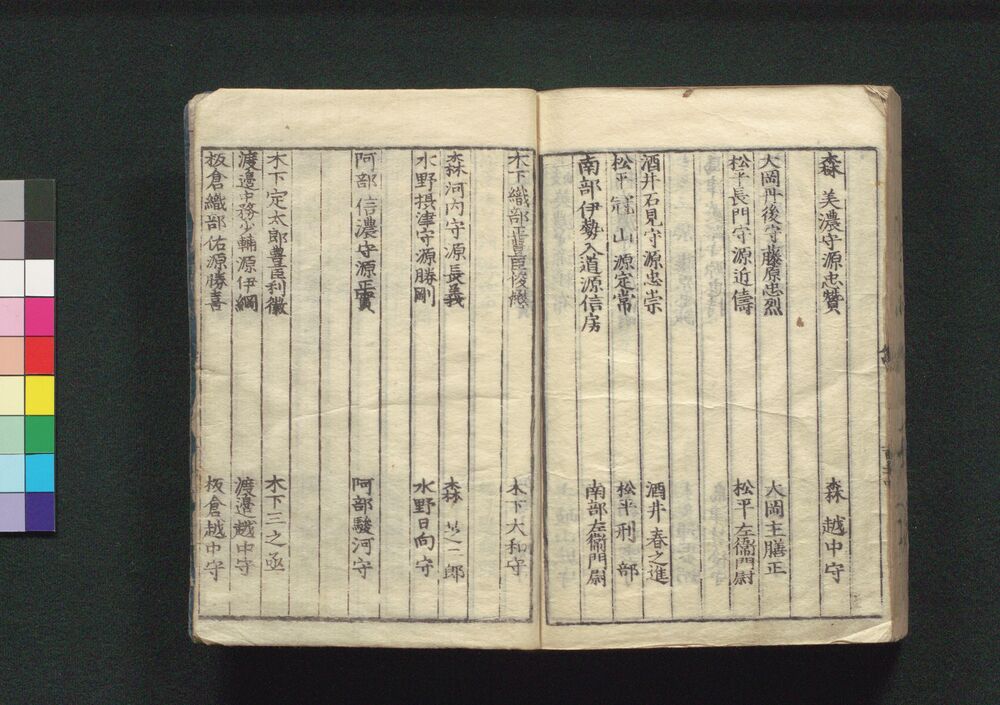 森 美濃守源忠贊 森 越中守
大岡丹後守藤原忠烈 大岡主膳正
松平長門守源近儔 松平左衛門尉
酒井石見守源忠崇 酒井春之進
松平冠山源定常 松平刑部
南部伊勢入道源信房 南部左衛門尉
木下織部正豊臣俊懋 木下大和守
森河内守源長義 森 二郎
水野摂津守源勝剛 水野日向守
阿部信濃守源正實 阿部駿河守
木下定太郎豊臣利徽 木下三之丞
渡邊中務少輔源伊綱 渡邊越中守
板倉織部佑源勝喜 板倉越中守